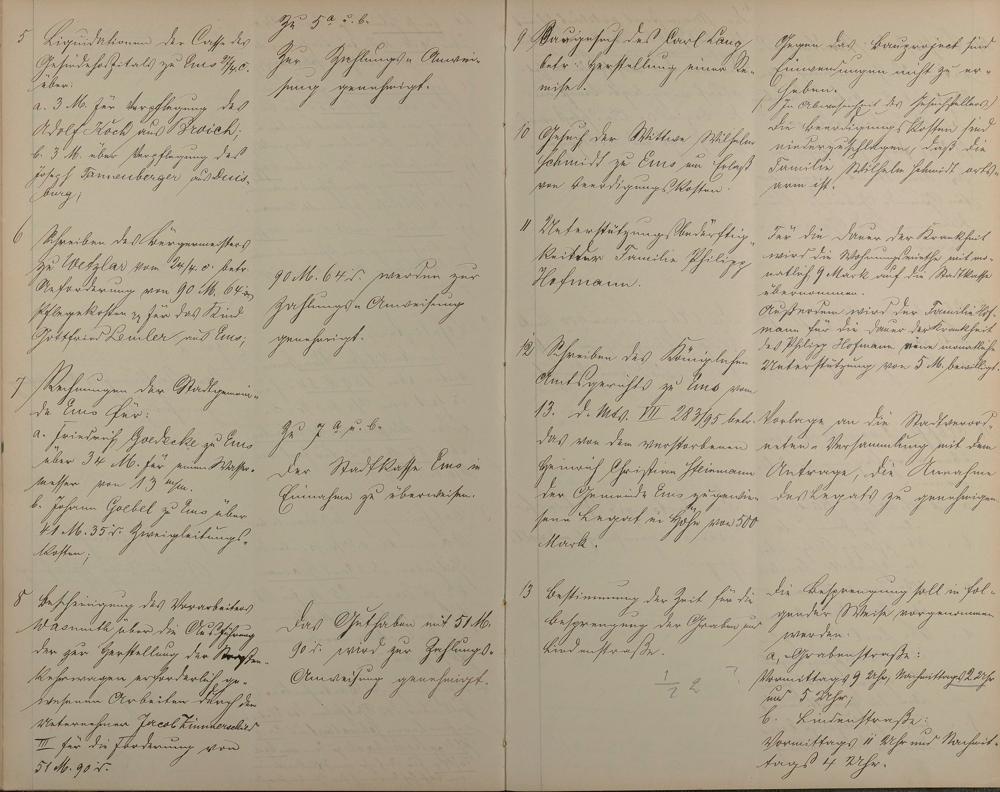 5 Liquidationen der Casse des
Gesindehospitals zu Ems c.
über:
a. 3 M. für Verpflegung des
Adolf Koch aus Broich;
b. 3 M. über Verpflegung des
Josef Tannenberger aus Duis-
burg;
Zu 5 a u. b.
Zur Zahlungs-Anwei-
sung genehmigt.
6 Schreiben des Bürgermeisters
zu Wetzlar vom 24/4. c. betr.
Anforderung von 90 M. 64 d.
Pflegekosten für das Kind
Gottfried Lemler aus Ems;
90 M. 64 d. werden zur
Zahlungs-Anweisung
genehmigt.
7 Rechnungen der Stadtgemein-
de Ems für:
a. Friedrich Goedecke zu Ems
über 34 M. für einen Wasser-
messer von 13 m/m.
b. Johann Goebel zu Ems über
41 M. 35 d. Zweigleitungs-
kosten;
Zu 7 a u. b.
Der Stadtkasse Ems in
Einnahme zu überweisen.
8 Bescheinigung des Vorarbeiters
über die Ausführung
der zur Herstellung der Straßen-
kehrwagen erforderlich ge-
wesenen Arbeiten durch den
Unternehmer Jacob Zimmerschied
III für die Forderung von
51 M. 90 d.
Das Guthaben mit 51 M.
90 d. wird zur Zahlungs-
Anweisung genehmigt.
9 Baugesuch des Carl Lang
betr. Herstellung einer Re-
mise.
Gegen das Bauproject sind
Einwendungen nicht zu er-
heben.
(In Abwesenheit des Gesuchstellers)
10 Gesuch der Wittwe Wilhelm
Schmidt zu Ems um Erlaß
von Beerdigungskosten.
Die Beerdigungskosten sind
niederzuschlagen, daß die
Familie Wilhelm Schmidt orts-
arm ist.
11 Unterstützungsbedürftig-
keit der Familie Philipp
Hofmann.
Für die Dauer der Krankheit
wird die Wohnungsmiethe mit mo-
natlich 9 Mark auf die Stadtkasse
übernommen.
Außerdem wird der Familie Hof-
mann für die Dauer der Krankheit
des Philipp Hofmann eine monatliche
Unterstützung von 5 M. bewilligt.
12 Schreiben des Königlichen
Amtsgerichts zu Ems vom
13. d. Mts. VII 283/95 betr.
das von dem verstorbenen
Heinrich Christian Steinmann
der Gemeinde Ems zugewie-
sene Legat in Höhe von 500
Mark.
Vorlage an die Stadtverord-
neten-Versammlung mit dem
Antrage, die Annahme
des Legats zu genehmigen
13 Bestimmung der Zeit für die
Besprengung der Graben und
Lindenstraße.
1/2 2
?
Die Besprengung soll in fol-
gender Weise vorgenommen
werden:
a, Grabenstraße:
Vormittags 9 Uhr, Nachmittags 2 Uhr
und 5 Uhr;
b. Lindenstraße:
Vormittags 11 Uhr und Nachmit-
tags 4 Uhr.